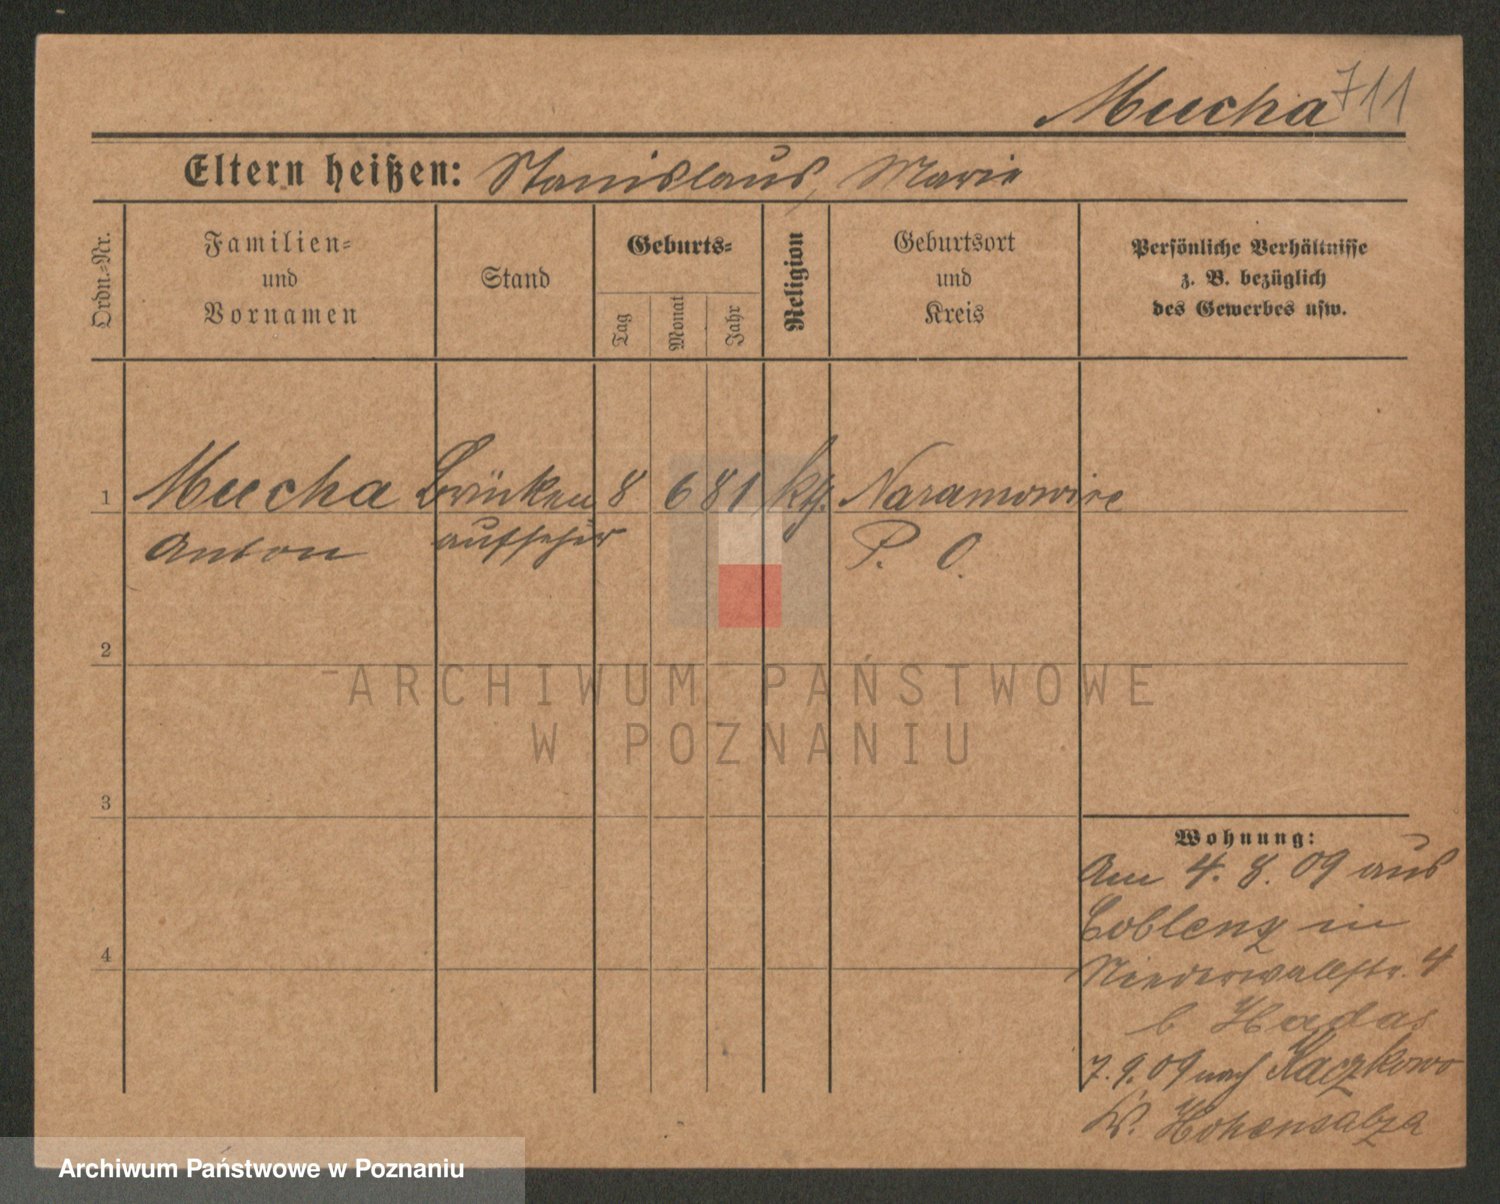 Mucha 711
Eltern heißen: Stanislaus, Marie
Ordn.-Nr.
Familien-
und
Vornamen
Stand
Geburts-
Tag
Monat
Jahr
Religion
Geburtsort
und
Kreis
Persönliche Verhältnisse
z. B. bezüglich
des Gewerbes usw.
1 Mucha Brücken 8 6 81 kth. Naramowice
Anton aufseher P. O.
2
3
4
Wohnung:
Am 4. 8. 09 aus
Coblenz in
Niederwallstr. 4
b Hadas
7. 9. 09 nach Kaczkowo
Kr. Hohensalza
ARCHIWUM PAŃSTWOWE
W POZNANIU
Archiwum Państwowe w Poznaniu